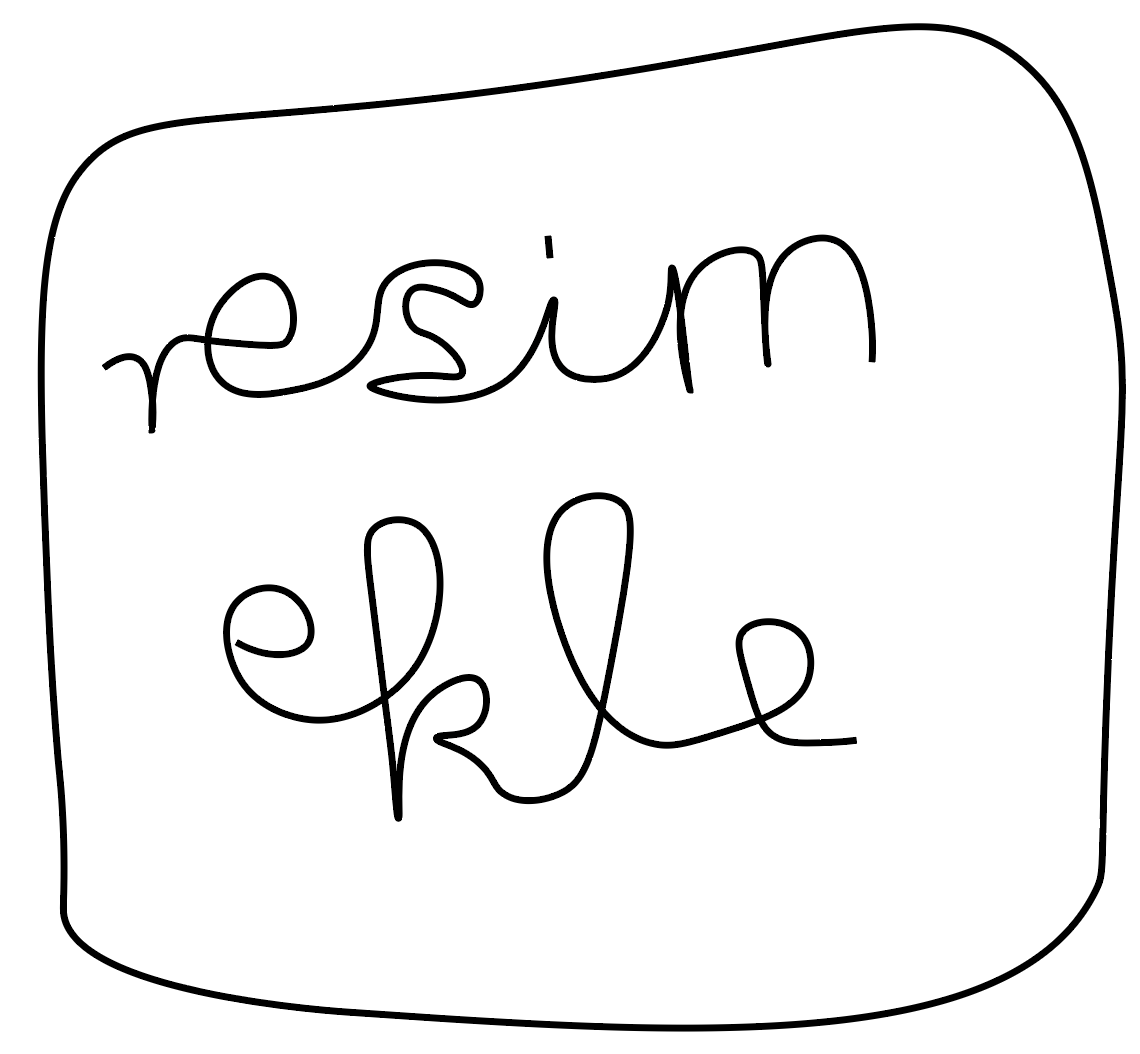 resim
ekle